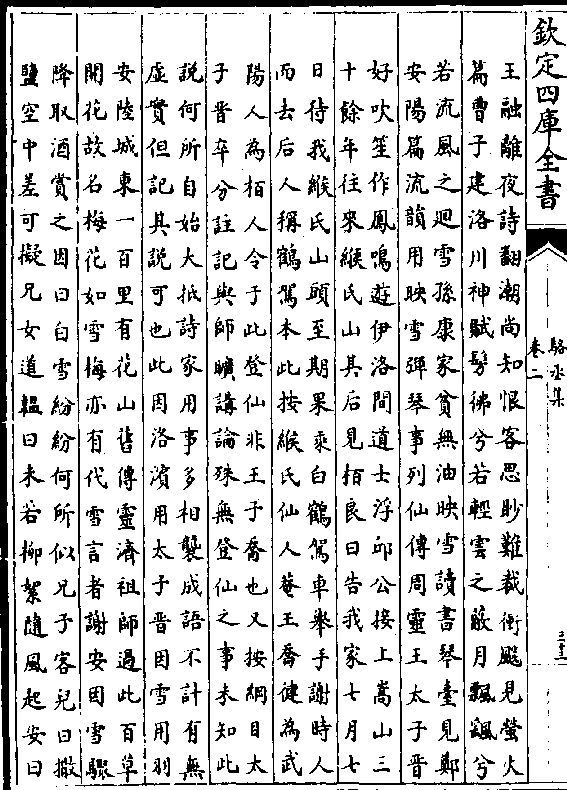 欽定四庫全書
駱丞集
卷二
王融離夜詩翻潮尚知恨客思眇難裁衝飈見螢火
篇曹子建洛川神賦髣彿兮若輕雲之蔽月飄颻兮
若流風之迴雪孫康家貧無油映雪讀書琴臺見鄭
安陽篇流韻用映雪彈琴事列仙傳周靈王太子晉
好吹笙作鳳鳴遊伊洛間道士浮邱公接上嵩山三
十餘年往來緱氏山其后見栢良曰告我家七月七
日待我緱氏山頭至期果乘白鶴駕車舉手謝時人
而去后人稱鶴駕本此按緱氏仙人菴王喬健為武
陽人為栢人令于此登仙非王子喬也又按綱目太
子晉卒分註記與師曠講論殊無登仙之事未知此
說何所自始大抵詩家用事多相襲成語不計有無
虛實但記其說可也此因洛濱用太子晉因雪用羽
安陸城東一百里有花山舊傳靈濟祖師過此百草
開花故名梅花如雪梅亦有代雪言者謝安因雪驟
降取酒賞之因曰白雪紛紛何所似兄子客兒曰撒
鹽空中差可擬兄女道韞曰未若柳絮隨風起安曰